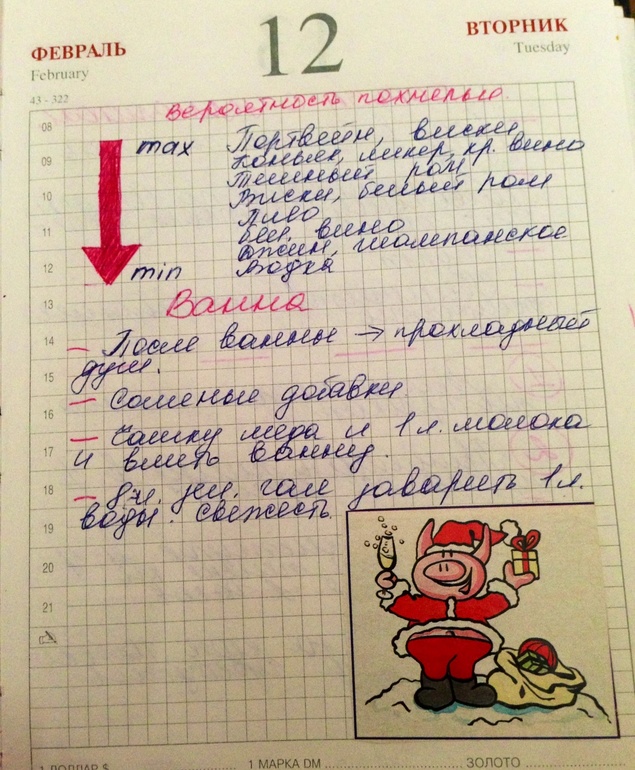 ФЕВРАЛЬ
February
12
ВТОРНИК
Tuesday
43 - 322
Вероятность похмелья
08
09
10
11
12
13
14
15
16
17
18
19
20
21
max Портвейн, виски
Коньяк, ликер, кр. вино
Темный ром
Виски, белый ром
Пиво
Бел. вино
Джин, шампанское
min Водка
Ванна
— После ванны → прохладный
душ.
— Соленые добавки
— Чашку меда и 1 л. молока
и влить ванну.
— зел. чая заварить 1 л.
воды. свежесть
1 ДОЛЛАР $
1 МАРКА DM
ЗОЛОТО